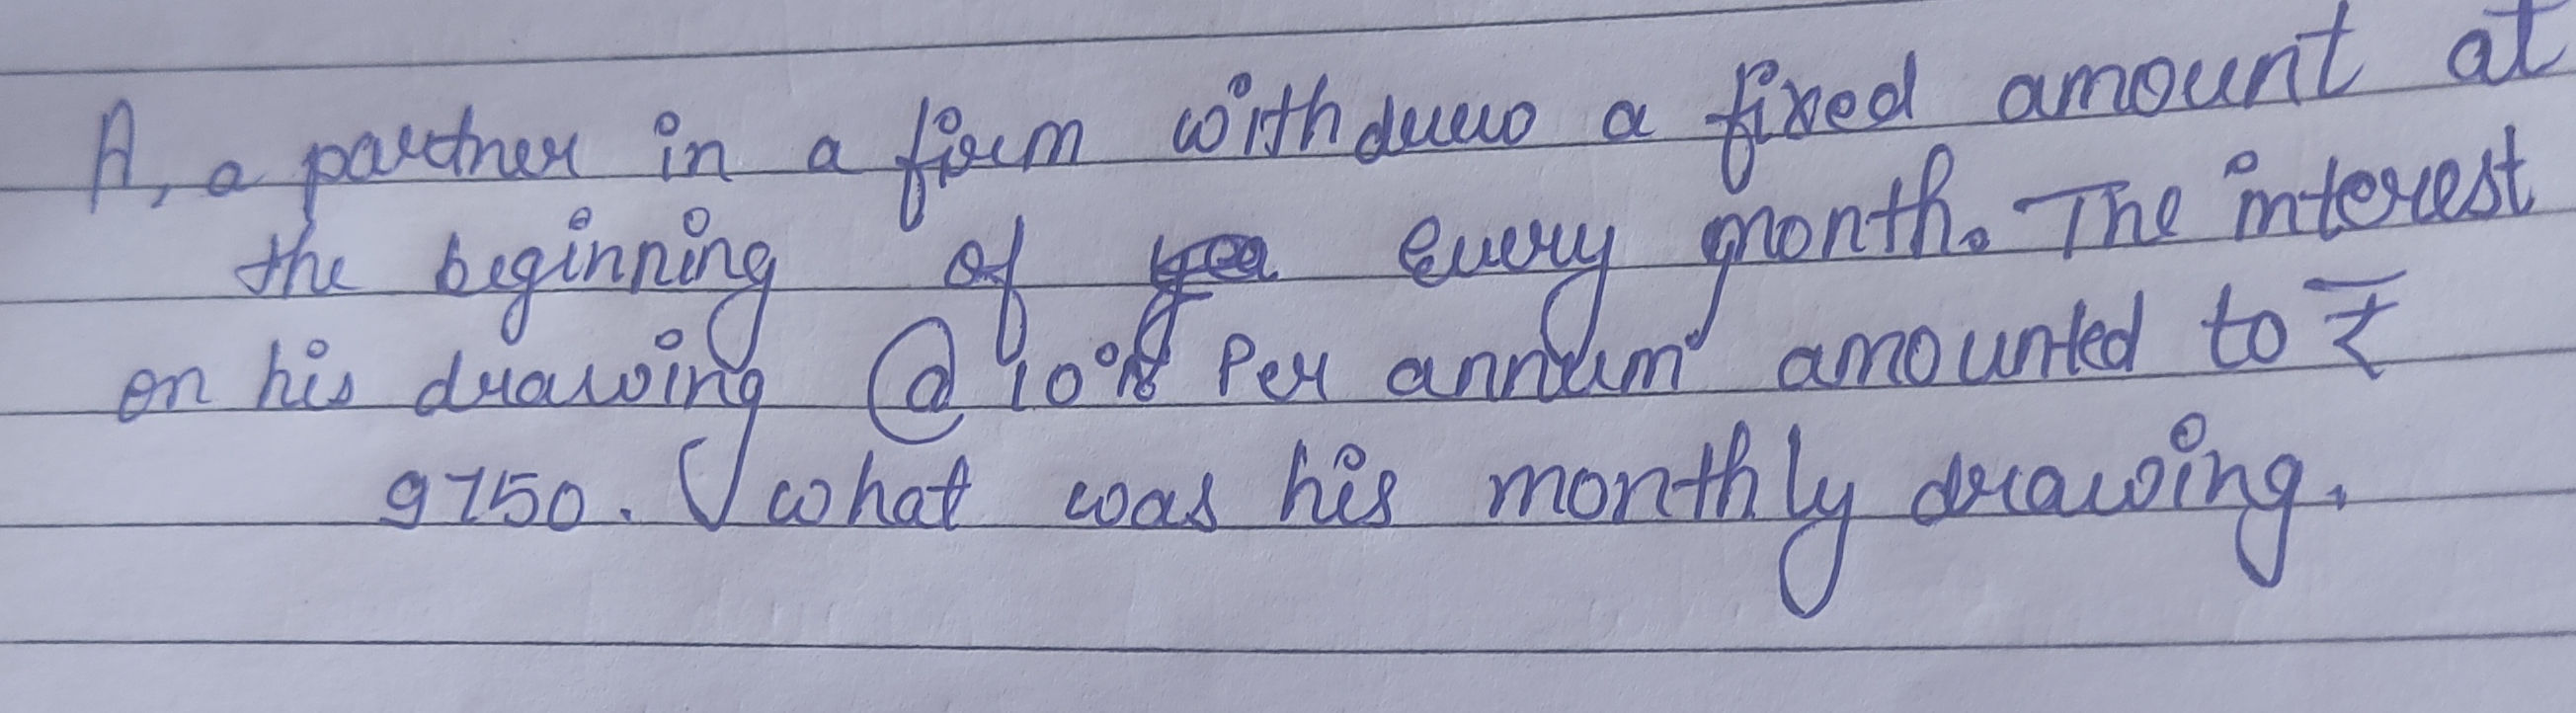 A, a partner in a firm withdrew a fixed amount at
the beginning of every month. The interest
on his drawing @ 10% Per annum amounted to ₹
9750. What was his monthly drawing.